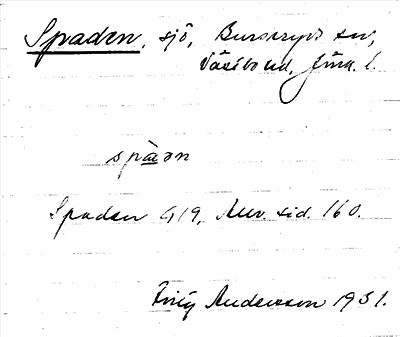 Spaden, sjö, Burseryds sn,
Västbo hd, Jönk. l.
spàən
Spaden G19, Auv. sid. 160.
Frig Andersson 1931.